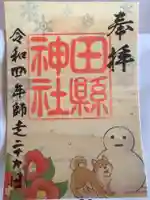 奉拝
田縣
神社
令和四年師走二十九日